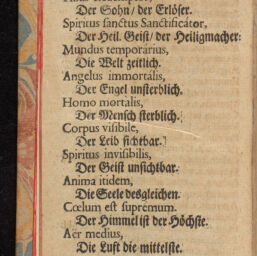 Der Sohn / der Erlöser.
Spiritus sanctus Sanctificator,
Der Heil. Geist / der Heiligmacher:
Mundus temporarius,
Die Welt zeitlich.
Angelus immortalis,
Der Engel unsterblich.
Homo mortalis,
Der Mensch sterblich.
Corpus visibile,
Der Leib sichtbar.
Spiritus invisibilis,
Der Geist unsichtbar.
Anima itidem,
Die Seele desgleichen.
Cœlum est supremum.
Der Himmel ist der Höchste.
Aër medius,
Die Luft die mittelste.